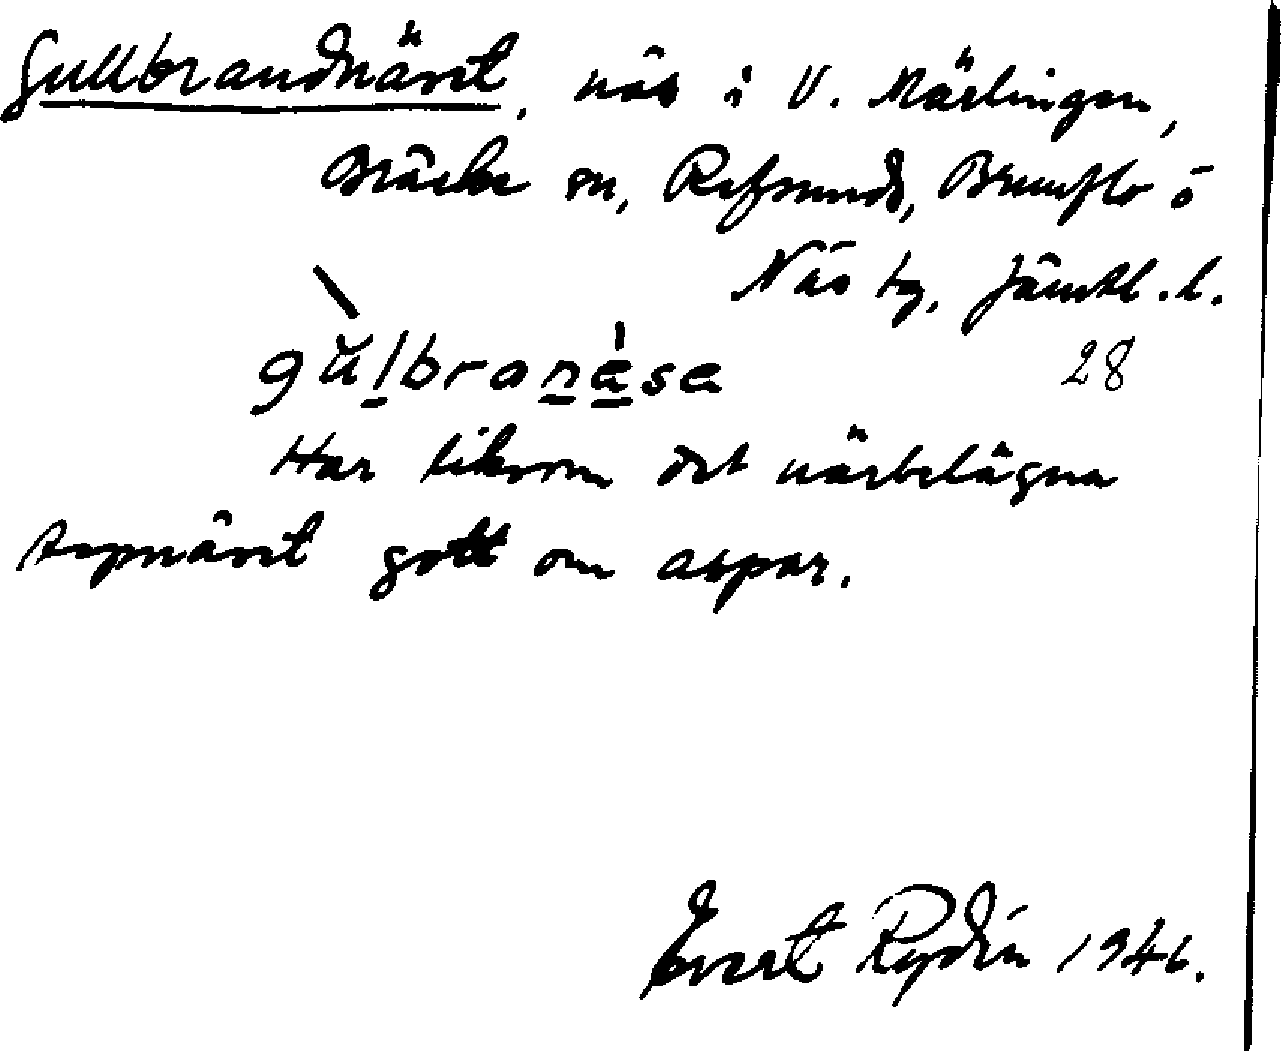 Gullbrandnäset, näs i V. Märlingen,
Bräcke sn, Refsunds, Brunflo o
Näs tg, Jämtl. l.
gŭlbranèsa
28
Har liksom det närbelägna
Aspnäset gott om aspar.
Evert Rydin 1946.